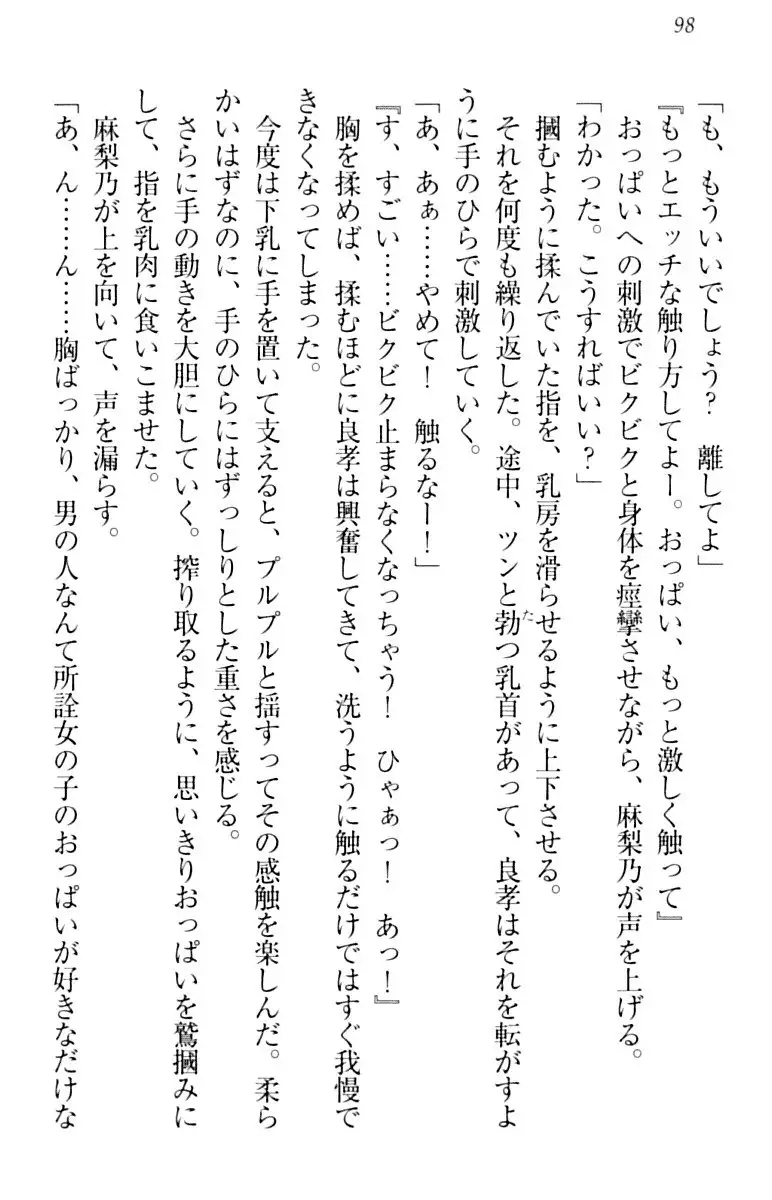 98
「も、もういいでしょう？　離してよ」
『もっとエッチな触り方してよー。おっぱい、もっと激しく触って』
おっぱいへの刺激でビクビクと身体を痙攣させながら、麻梨乃が声を上げる。
「わかった。こうすればいい？」
摑むように揉んでいた指を、乳房を滑らせるように上下させる。
それを何度も繰り返した。途中、ツンと勃つ乳首があって、良孝はそれを転がすよ
うに手のひらで刺激していく。
「あ、あぁ……やめて！　触るなー！」
『す、すごい……ビクビク止まらなくなっちゃう！　ひゃぁっ！　あっ！』
胸を揉めば、揉むほどに良孝は興奮してきて、洗うように触るだけではすぐ我慢で
きなくなってしまった。
今度は下乳に手を置いて支えると、プルプルと揺すってその感触を楽しんだ。柔ら
かいはずなのに、手のひらにはずっしりとした重さを感じる。
さらに手の動きを大胆にしていく。搾り取るように、思いきりおっぱいを鷲摑みに
して、指を乳肉に食いこませた。
麻梨乃が上を向いて、声を漏らす。
「あ、ん……ん……胸ばっかり、男の人なんて所詮女の子のおっぱいが好きなだけな